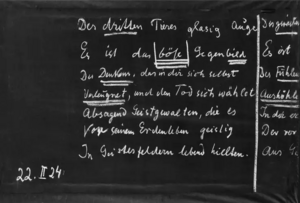 Des dritten Tieres glasig Auge
Es ist das böse Gegenbild
Des Denkens, das in dir sich selbst
Verleugnet, und den Tod sich wählet
Absagend Geistgewalten, die es
Vor seinem Erdenleben geistig
In Geistesfeldern lebend hielten.
22. II 24.
Es ist
Des Fühlens
Aushöhlt
In der
Der vor
Aus